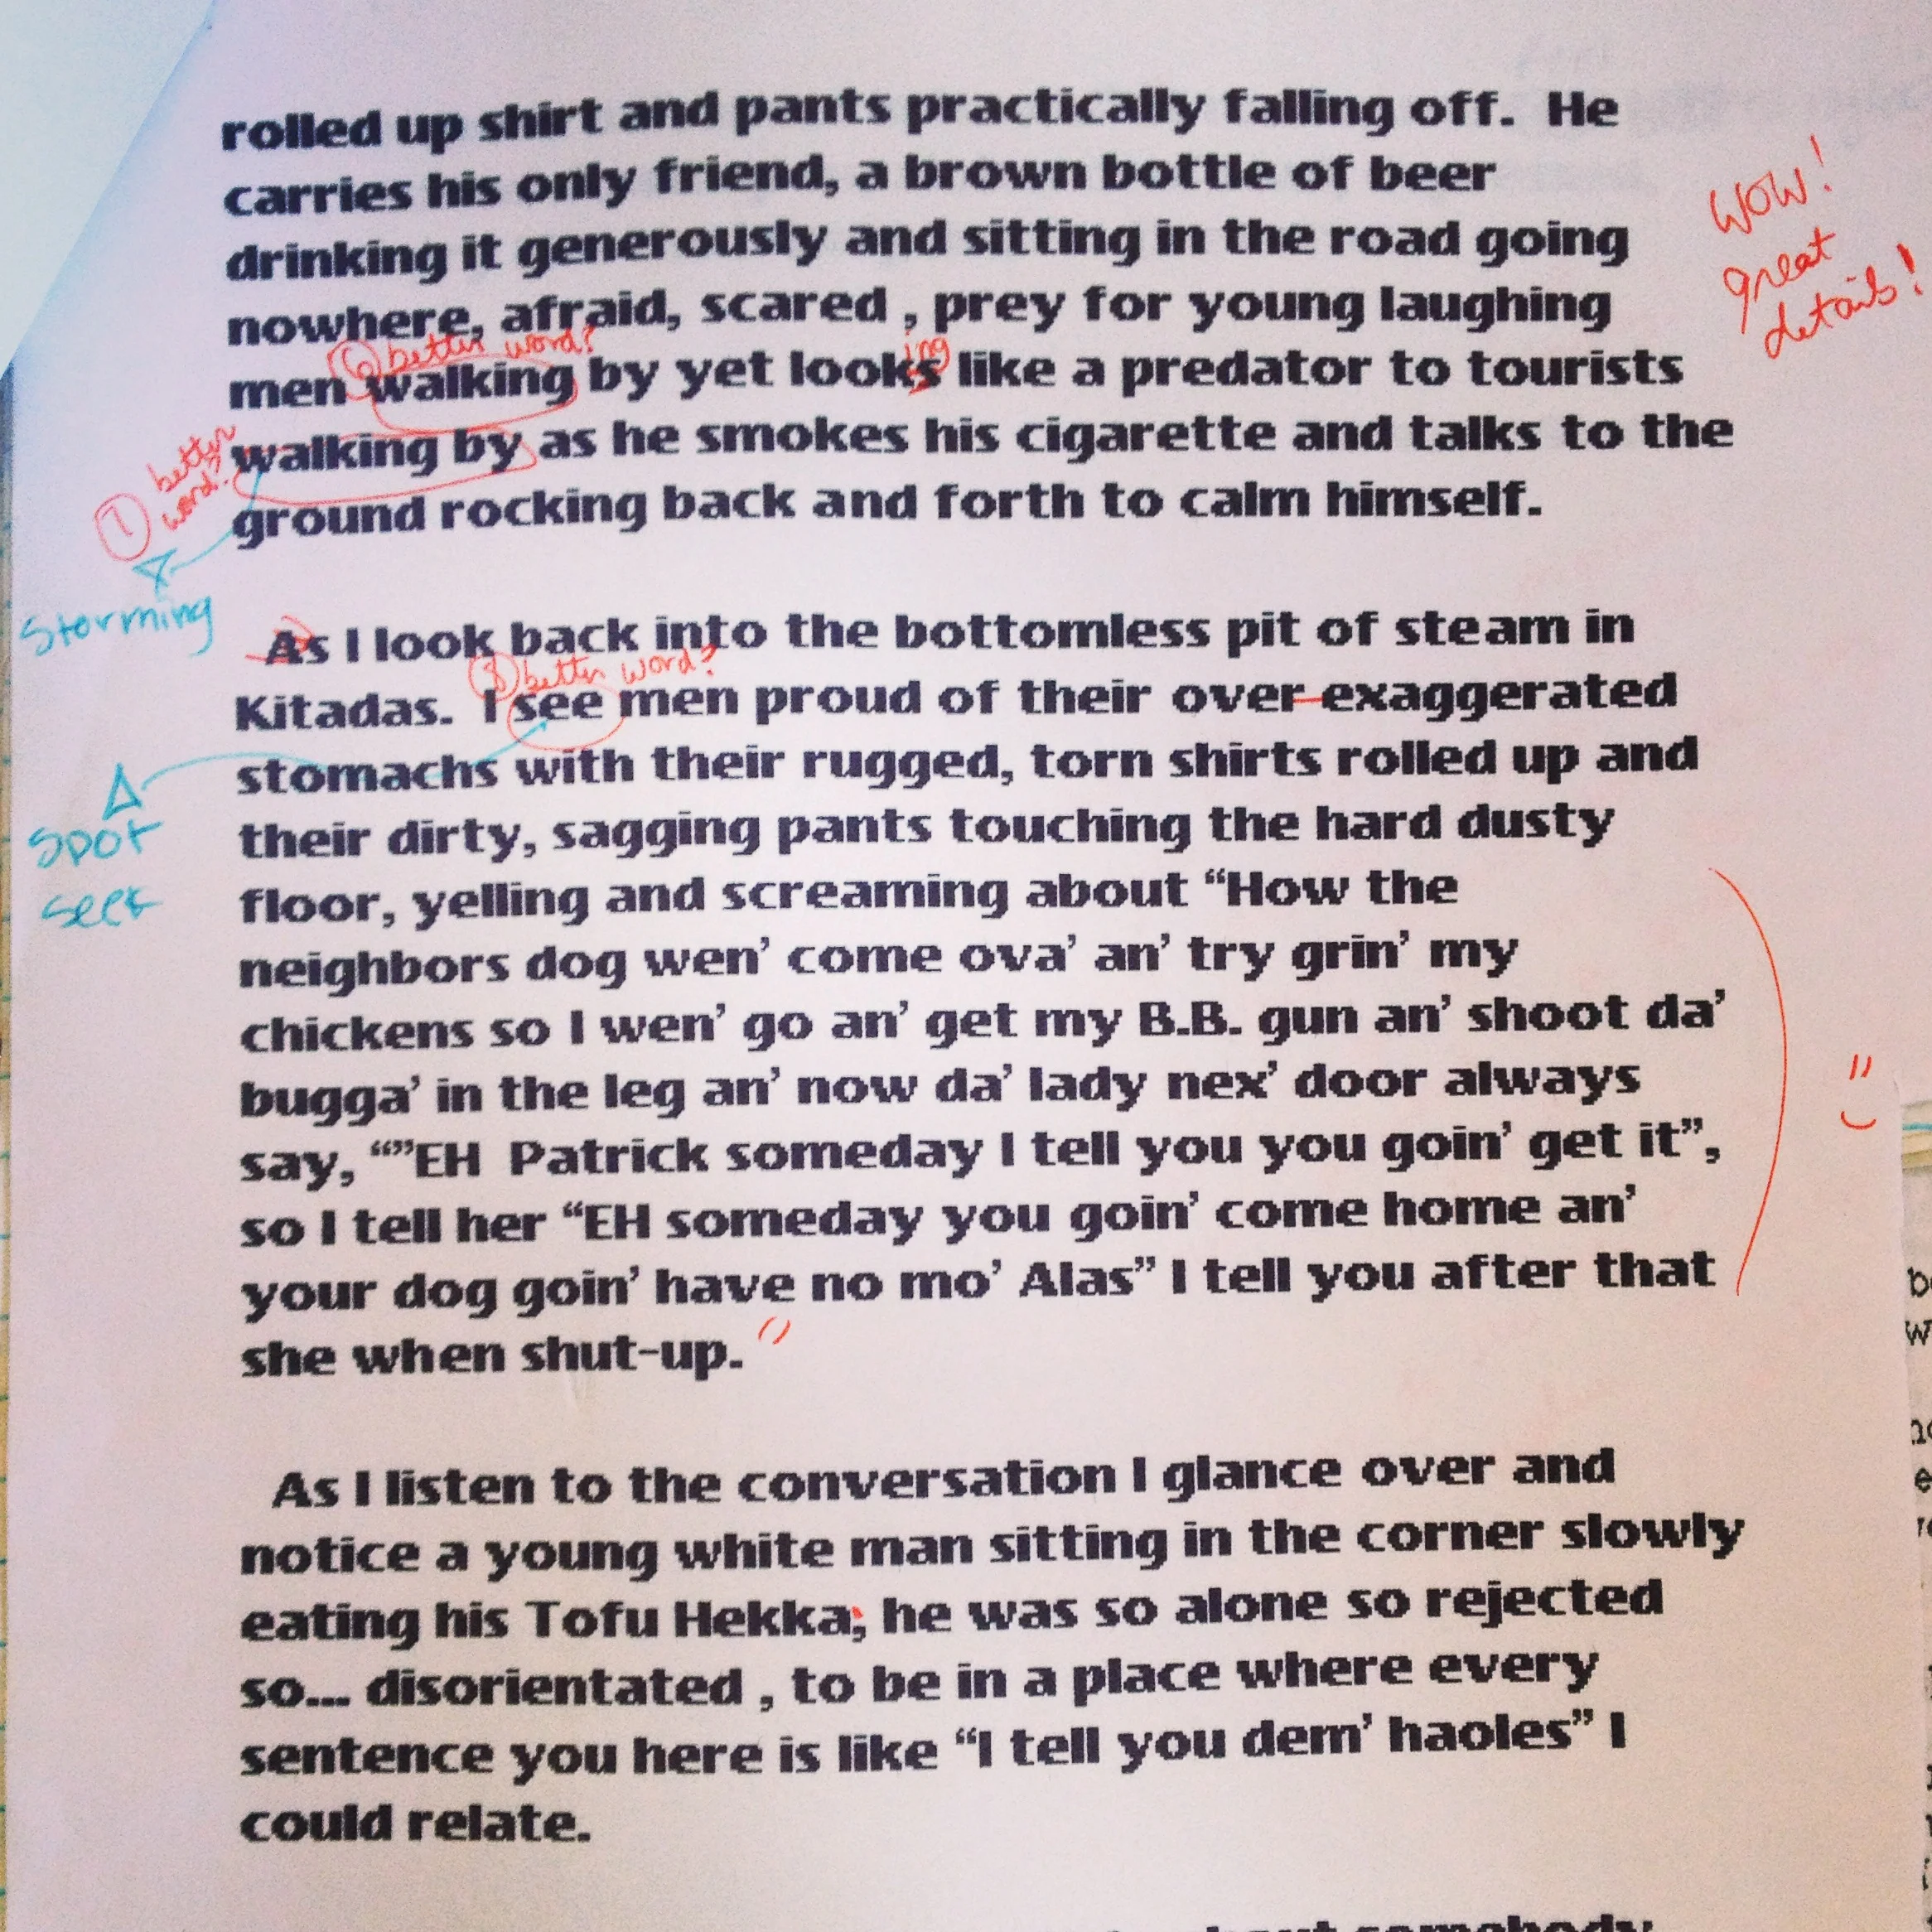 rolled up shirt and pants practically falling off. He
carries his only friend, a brown bottle of beer
drinking it generously and sitting in the road going
nowhere, afraid, scared , prey for young laughing
WOW!
great
details!
6 better word?
ing
men walking by yet looks like a predator to tourists
better
word?
1
walking by as he smokes his cigarette and talks to the
ground rocking back and forth to calm himself.
Storming
As I look back into the bottomless pit of steam in
8 better word?
Kitadas. I see men proud of their over-exaggerated
stomachs with their rugged, torn shirts rolled up and
their dirty, sagging pants touching the hard dusty
spot
seek
floor, yelling and screaming about “How the
neighbors dog wen’ come ova’ an’ try grin’ my
chickens so I wen’ go an’ get my B.B. gun an’ shoot da’
bugga’ in the leg an’ now da’ lady nex’ door always
say, “”EH Patrick someday I tell you you goin’ get it”,
so I tell her “EH someday you goin’ come home an’
your dog goin’ have no mo’ Alas” I tell you after that
she when shut-up. "
As I listen to the conversation I glance over and
notice a young white man sitting in the corner slowly
eating his Tofu Hekka; he was so alone so rejected
so... disorientated , to be in a place where every
sentence you here is like “I tell you dem’ haoles” I
could relate.
somebody